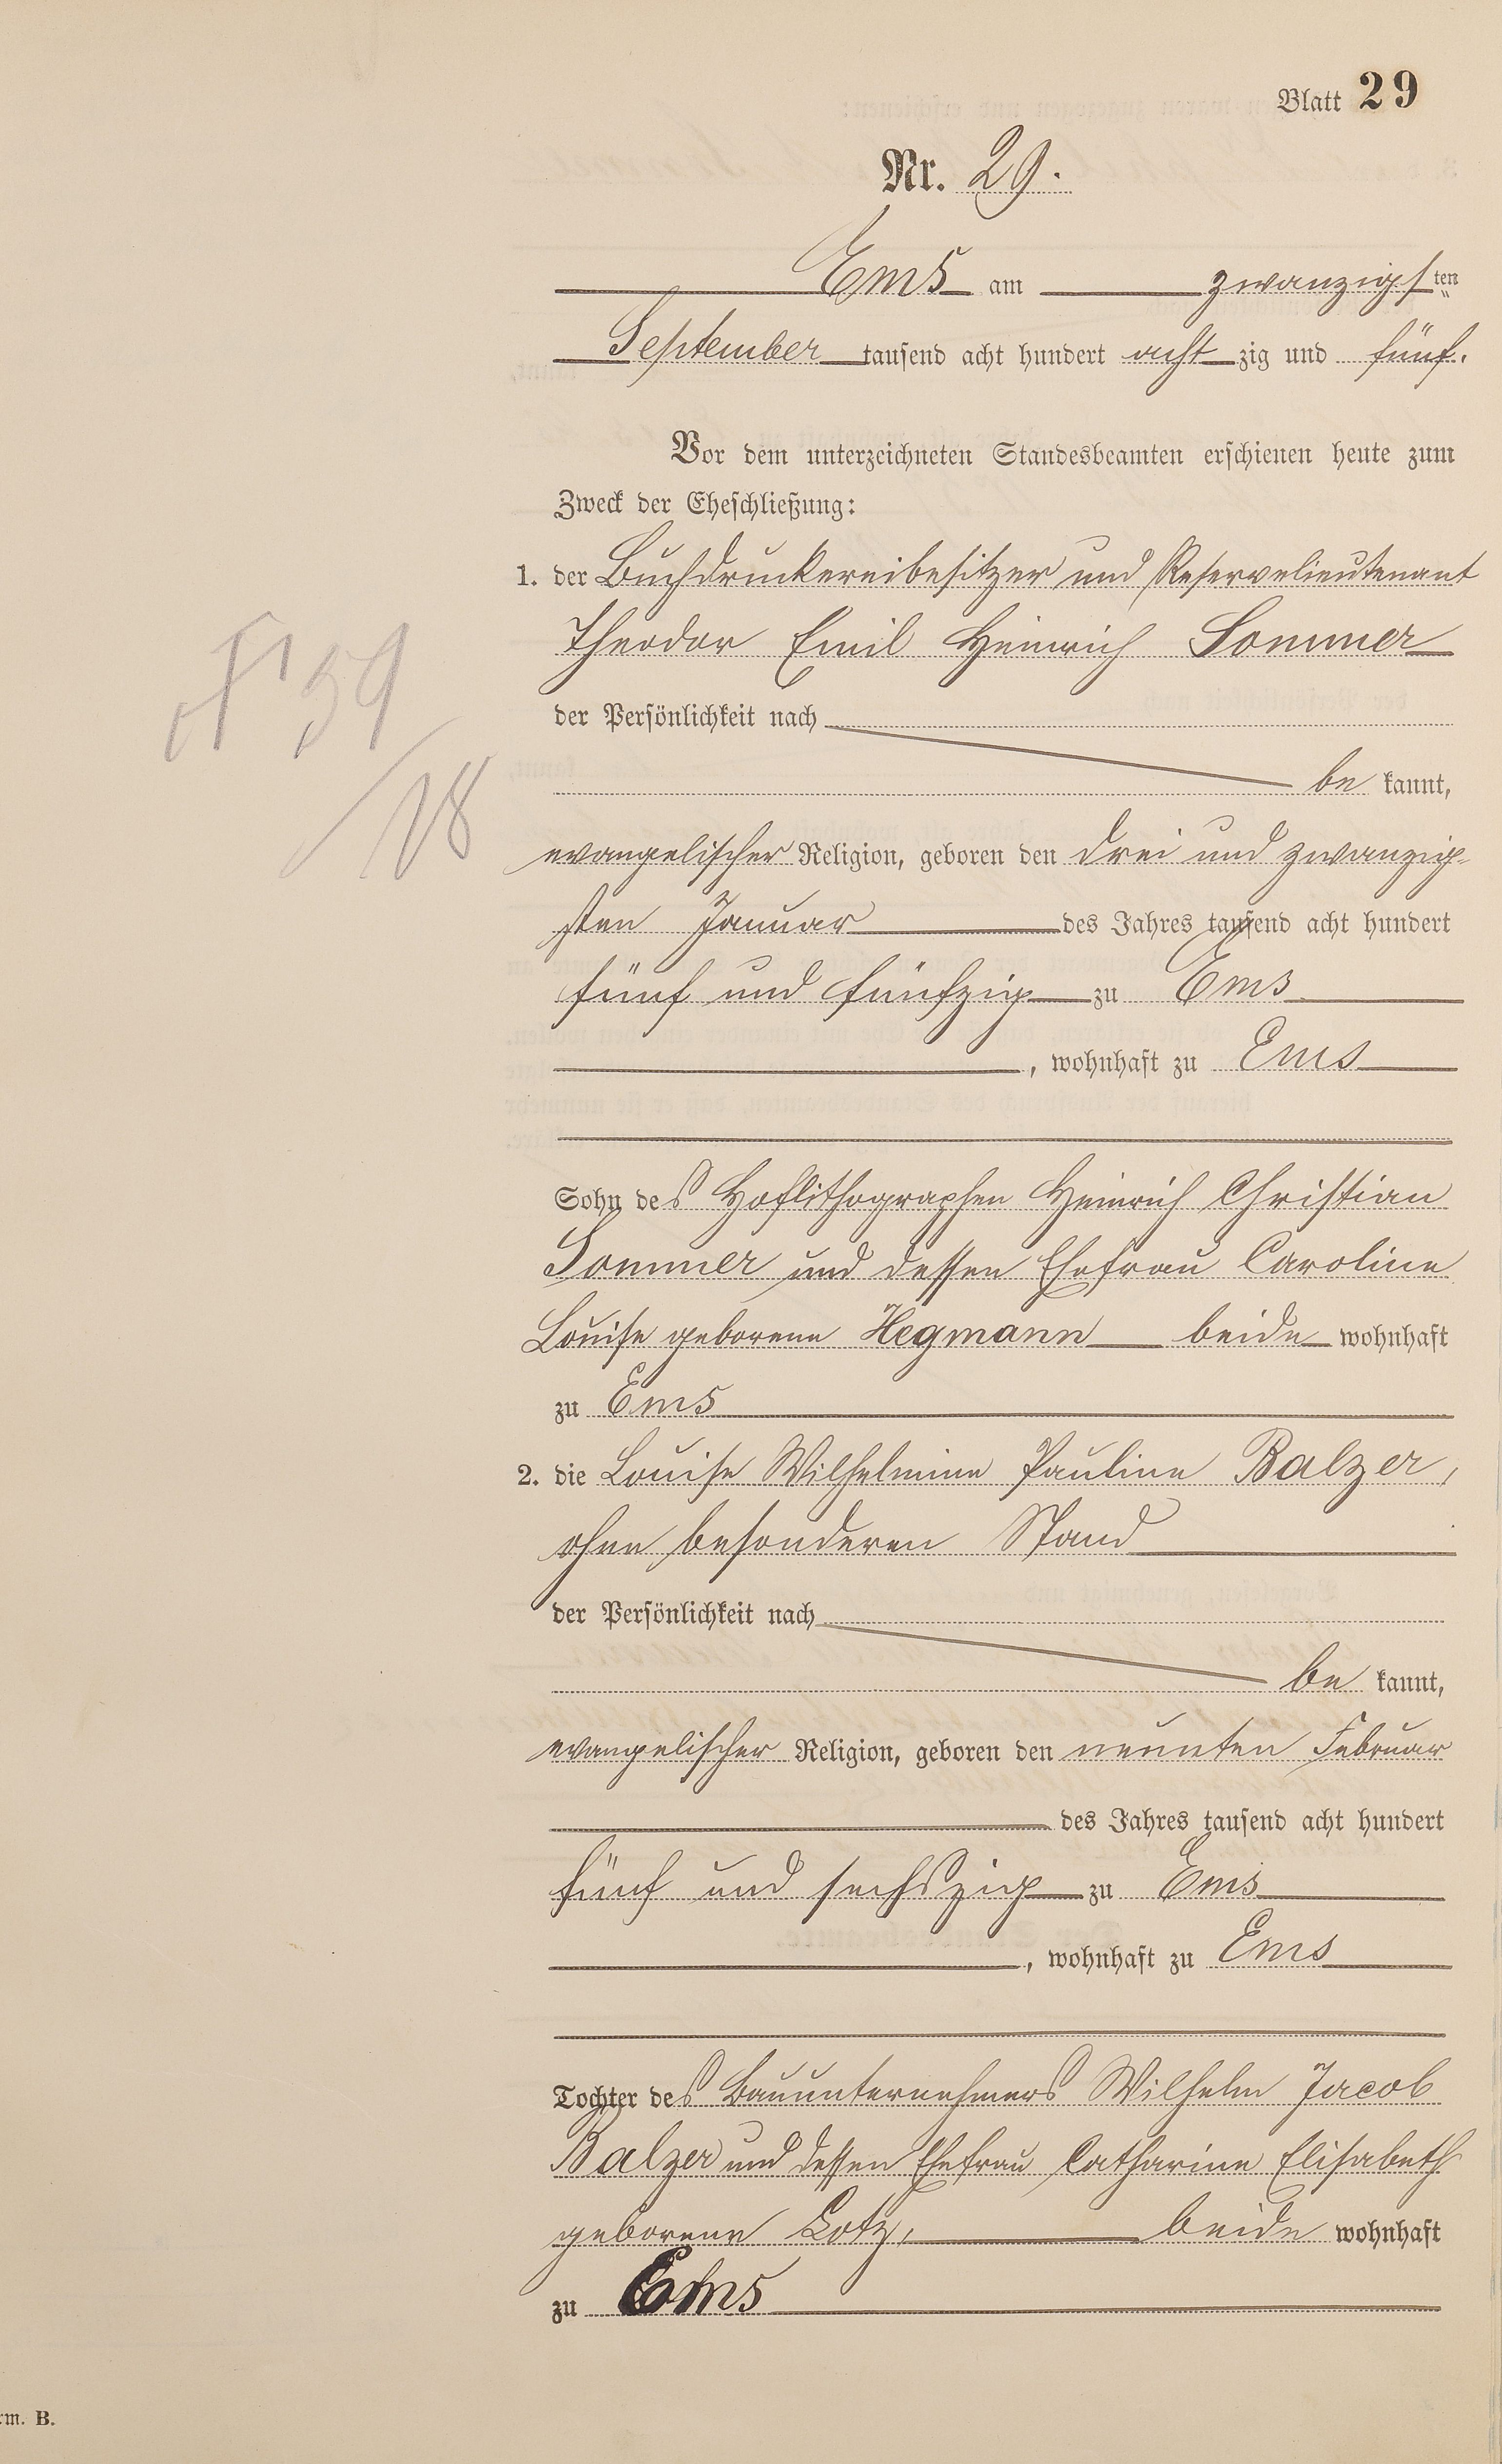 Blatt 29
Nr. 29.
Ems am zwanzigsten
September tausend acht hundert acht zig und fünf.
Vor dem unterzeichneten Standesbeamten erschienen heute zum
Zweck der Eheschließung:
1. der Buchdruckereibesitzer und Reservelieutenant
Theodor Emil Heinrich Sommer
der Persönlichkeit nach
be kannt,
evangelischer Religion, geboren den drei und zwanzig-
sten Januar des Jahres tausend acht hundert
fünf und fünfzig zu Ems
, wohnhaft zu Ems
Sohn des Hoflithographen Heinrich Christian
Sommer und dessen Ehefrau Caroline
Louise geborene Hegmann beide wohnhaft
zu Ems
2. die Louise Wilhelmine Pauline Balzer,
ohne besonderen Stand
der Persönlichkeit nach
be kannt,
evangelischer Religion, geboren den neunten Februar
des Jahres tausend acht hundert
fünf und sechszig zu Ems
, wohnhaft zu Ems
Tochter des Bauunternehmers Wilhelm Jacob
Balzer und dessen Ehefrau Catharine Elisabeth
geborene Lotz, beide wohnhaft
zu Ems
59
/18
rm. B.